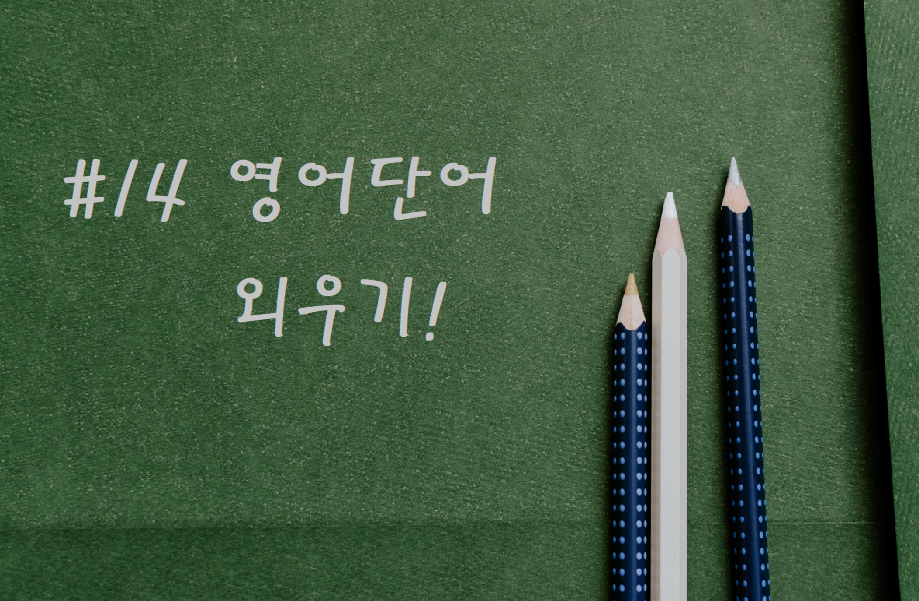 #14 영어단어
외우기!